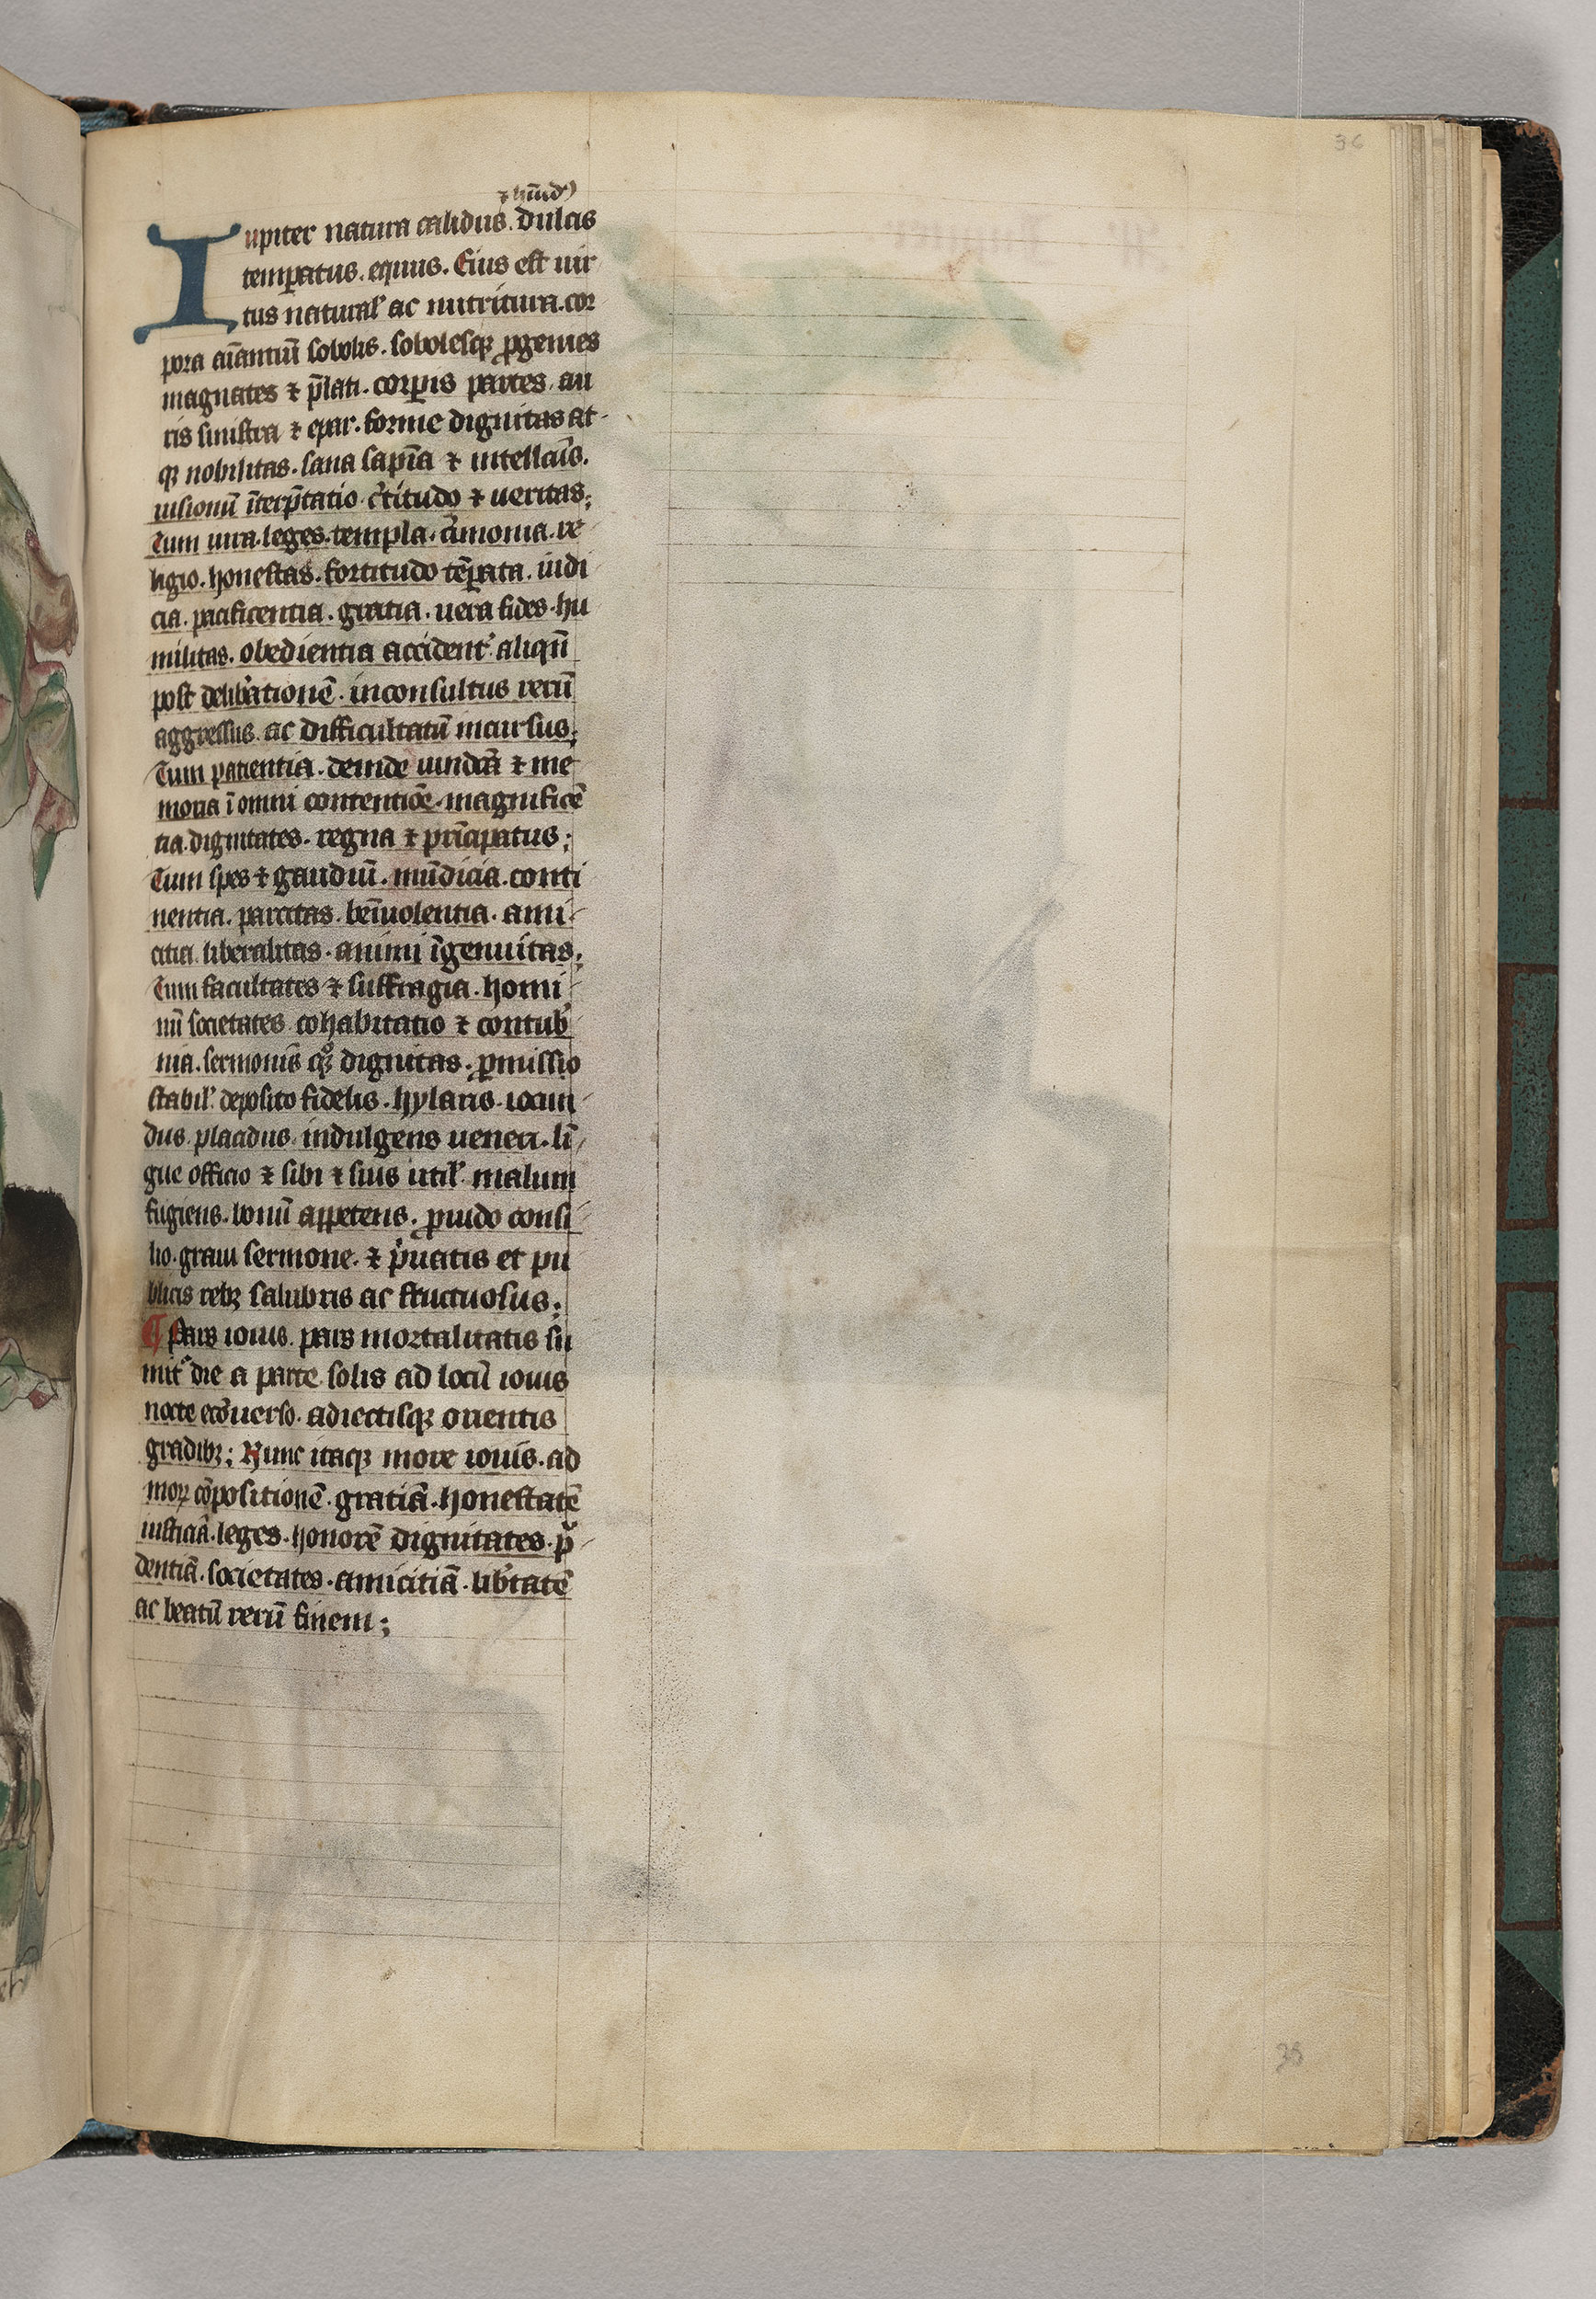 36
⁊ hūid᷒
Iupiter natura calidus. dulcis
temꝑatus. equus. Eius est uir
tus natural' ac nutritura. cor
pora aīantiū sobolis. sobolesqꝫ ꝓgenies
magnates ⁊ p̄lati. corꝑis partes. au
ris sinistra ⁊ epar. forme dignitas at
qꝫ nobilitas. sana sapīa ⁊ intellcūs.
uisionū īterp̄tatio. c̄titudo ⁊ ueritas;
Tum iura. leges. templa. c̄imonia. re
ligio. honestas. fortitudo tēꝑata. iudi
cia. pacificentia. gratia. uera fides. hu
militas. obedientia accident' aliqn̄
post delib̄ationē. inconsultus rerū
aggressus. ac difficultatū incursus;
Tum patientia. deinde uindcā ⁊ me
moria ī omni contentiōe. magnificē
tia. dignitates. regna ⁊ prīcipatus;
Tum spes ⁊ gaudiū. mūdicia. conti
nentia. parcitas. benīuolentia. ami
citia. liberalitas. animi īgenuitas;
Tum facultates ⁊ suffragia. homi
nū societates cohabitatio ⁊ contub̄
nia. sermonis qͦꝫ dignitas. ꝓmissio
stabil' deposito fidelis. hylaris. iocun
dus. placidus. indulgens ueneri. lī
gue officio ⁊ sibi ⁊ suis util' malum
fugiens. bonū appetens. ꝓuido consi
lio. graui sermone. ⁊ pͥuatis et pu
blicis rebꝫ salubris ac fructuosus;
¶ Pars iouis. pars mortalitatis su
mit' die a parte solis ad locū iouis
nocte ecōuerso. adiectisqꝫ orientis
gradibꝫ; Nunc itaqꝫ more iouis. ad
moꝝ cōpositionē. gratiā. honestatē
iusticiā. leges. honorē dignitates. pͬ
dentiā. societates. amicitiā. lib̄tatē
ac beatū rerū finem;
38